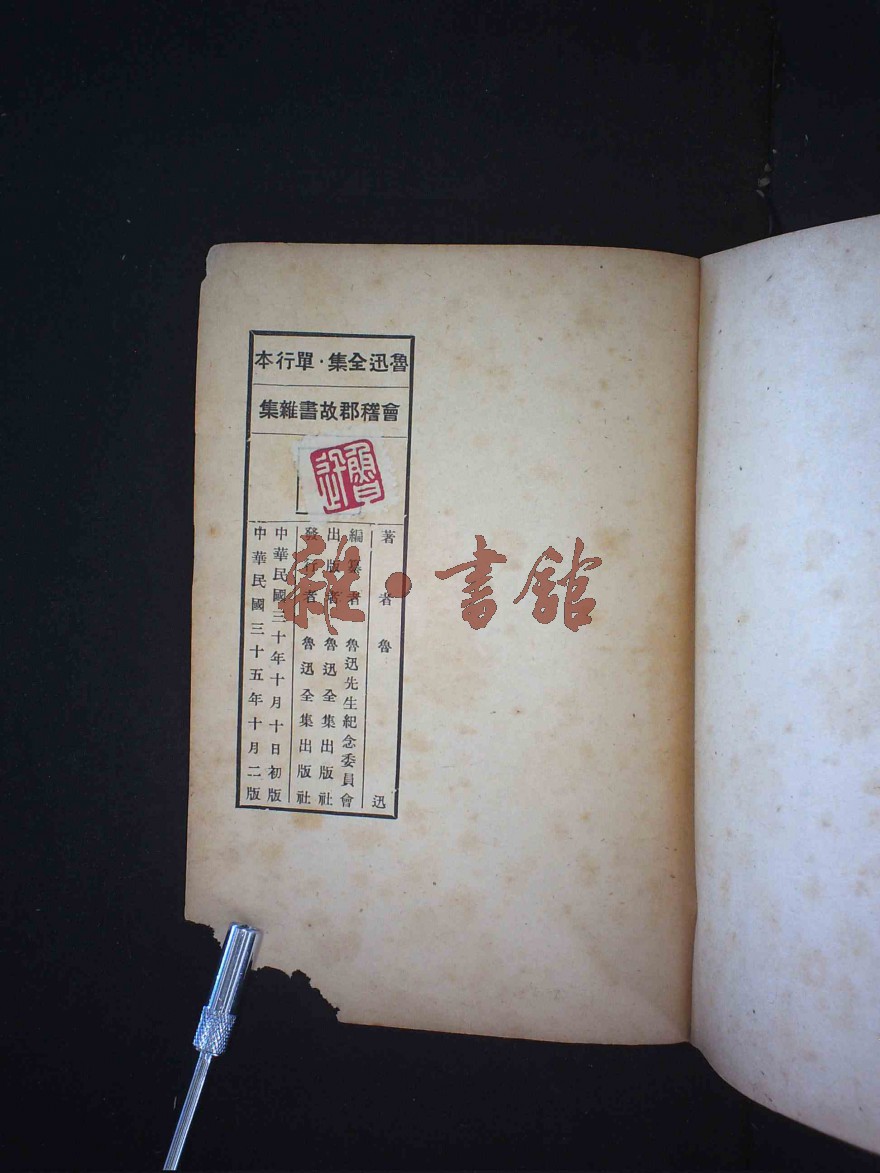 魯迅全集·單行本
會稽郡故書雜集
魯迅
著者魯迅
編纂者魯迅先生紀念委員會
出版者魯迅全集出版社
發行者魯迅全集出版社
中華民國三十年十月十日初版
中華民國三十五年十月二版
雜·書館